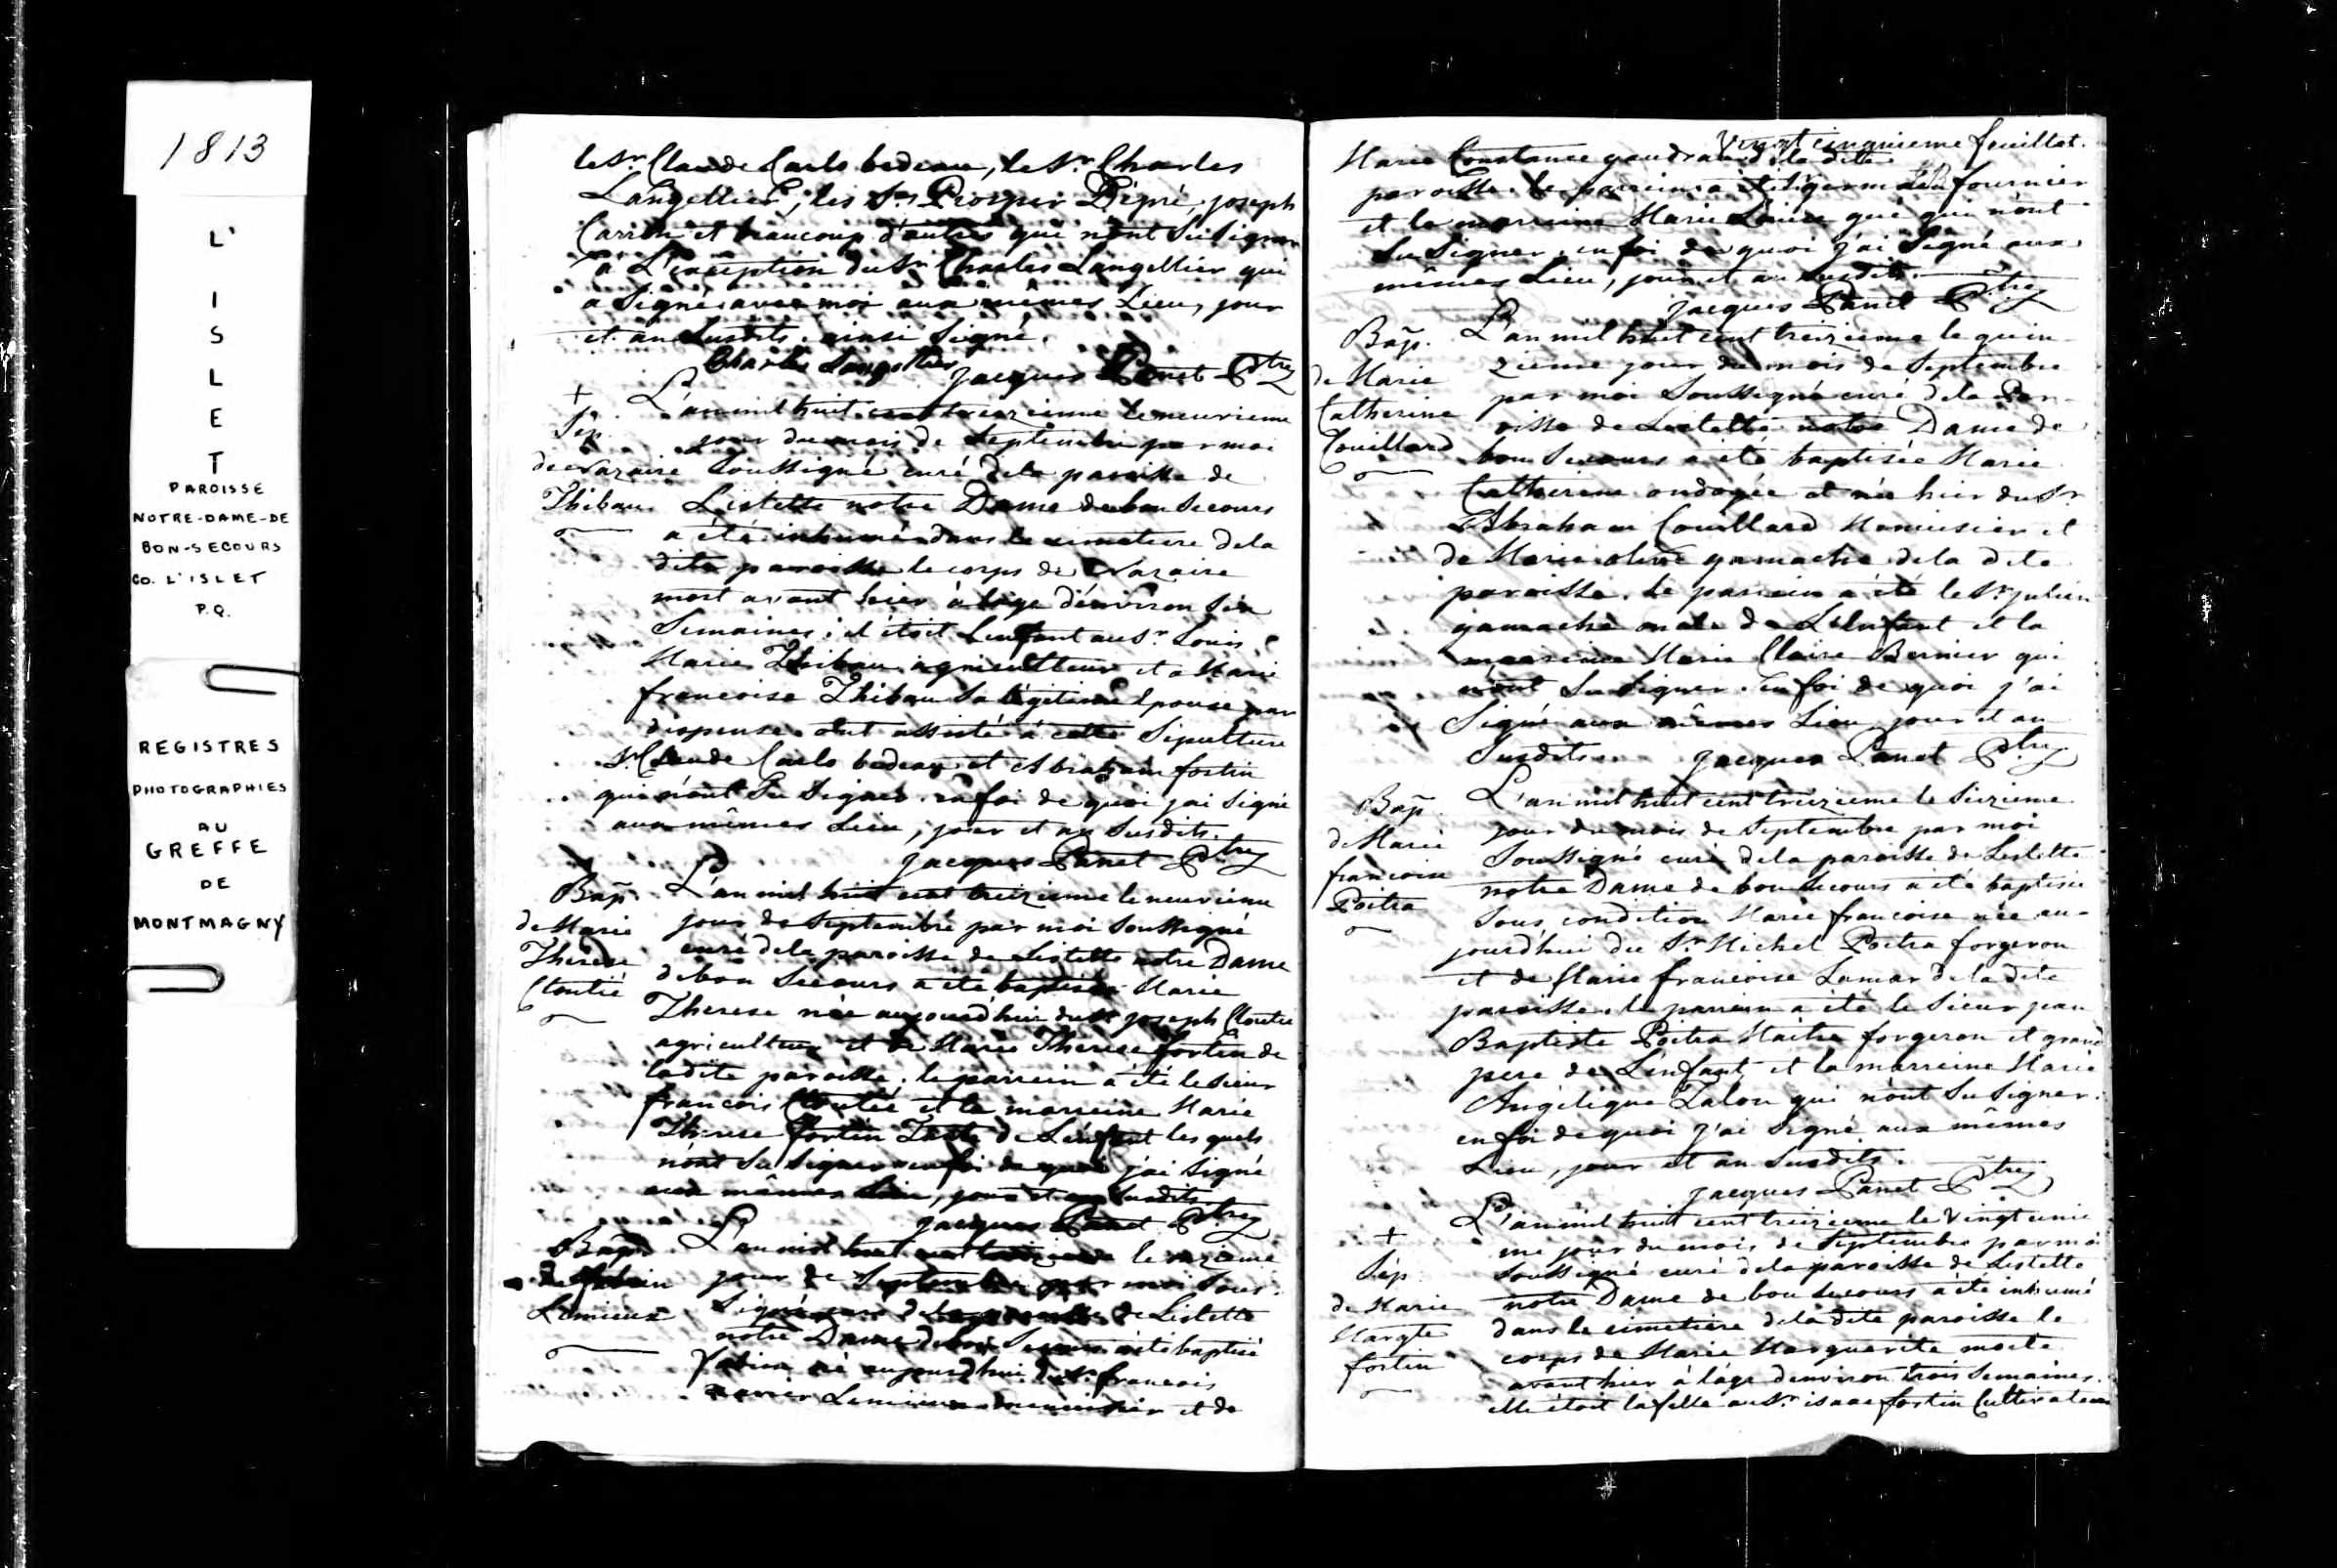 1813
L'
I
S
L
E
T
PAROISSE
NOTRE-DAME-DE
BON-SECOURS
CO. L'ISLET
P.Q.
REGISTRES
PHOTOGRAPHIES
AU
GREFFE
DE
MONTMAGNY
le Sr. Claude Carlo bedeau, le Sr. Charles
Langellier, les Srs Prosper Dépré, joseph
Carron et beaucoup d'autres qui n'ont Su Signer
à L'exception du Sr Charles Langellier qui
a Signé avec moi aux mêmes Lieu, jour
et an Susdits. ainsi Signé.
Charles Langellier
jacques Panet Ptre
+
Sep.
de Nazaire
Thibau
L'an mil huit cent treizieme le neuvieme
jour du mois de Septembre par moi
Soussigné curé dela paroisse de
Lislette notre Dame de bon Secours
a été inhumé dans le cimetiere dela
dite paroisse le corps de Nazaire
mort avant hier à l'âge d'environ Six
Semaines; il étoit L'enfant au Sr Louis
Marie Thibau agriculteur et a Marie
francoise Thibau Sa légitime Epouse par
dispense. ont assisté à cette Sepulture
Sr Claude Carlo bedeau et Abraham fortin
qui n'ont Su Signer. en foi de quoi j'ai Signé
aux mêmes Lieu, jour et an Susdits.
jacques Panet Ptre
Bap.
de Marie
Therese
Cloutié
L'an mil huit cent treizieme le neuvieme
jour de Septembre par moi Soussigné
curé dela paroisse de Lislette notre Dame
de bon Secours a été baptisée Marie
Therese née aujourd'hui du Sr joseph Cloutié
agriculteur et de Marie Therese fortin de
ladite paroisse. le parrein a été le Sieur
francois Cloutié et la marreine Marie
Therese fortin Tante de L'enfant lesquels
n'ont Su Signer en foi de quoi j'ai Signé
aux mêmes Lieu, jour et an Susdits
jacques Panet Ptre
Bap.
de
Lemieux
L'an mil huit cent treizieme le onzieme
jour de Septembre par moi Sous-
Signé curé dela paroisse de Lislette
notre Dame de bon Secours a été baptisé
né aujourd'hui du Sr francois
xavier Lemieux menuisier et de
Vingt cinquieme feuillet.
Marie Constance gaudraud dela dite
paroisse. le parrein a été fournier
et la marreine Marie qui n'ont
Su Signer. en foi de quoi j'ai Signé aux
mêmes Lieu, jour et an Susdits.
jacques Panet Ptre
Bap.
de Marie
Catherine
Couillard
L'an mil huit cent treizieme le quin-
zieme jour du mois de Septembre
par moi Soussigné curé dela Par-
oisse de Lislette notre Dame de
bon Secours a été baptisée Marie
Catherine ondoyée et née hier du Sr
Abraham Couillard Menuisier et
de Marie olive gamache dela dite
paroisse. le parrein a été le Sr julien
gamache oncle de L'Enfant et la
marreine Marie Claire Bernier qui
n'ont Su Signer. En foi de quoi j'ai
Signé aux mêmes Lieu jour et an
Susdits. jacques Panet Ptre
Bap.
de Marie
francoise
Poitra
L'an mil huit cent treizieme le Seizieme
jour du mois de Septembre par moi
Soussigné curé dela paroisse de Lislette
notre Dame de bon Secours a été baptisée
Sous condition Marie francoise née au-
jourdhui du Sr Michel Poitra forgeron
et de Marie francoise Lamar dela dite
paroisse. le parrein a été le Sieur jean
Baptiste Poitra Maitre forgeron et grand
pere de L'enfant et la marreine Marie
Angélique Talon qui n'ont Su Signer.
en foi de quoi j'ai Signé aux mêmes
Lieu, jour et an Susdits.
jacques Panet Ptre
+
Sép.
de Marie
Margte
fortin
L'an mil huit cent treizieme le Vingt unie
me jour du mois de Septembre par moi
Soussigné curé dela paroisse de Lislette
notre Dame de bon Secours a été inhumé
dans le cimetiere dela dite paroisse le
corps de Marie Marguerite morte
avant hier à l'âge d'environ trois Semaines.
elle étoit la fille au Sr isaac fortin Cultivateur